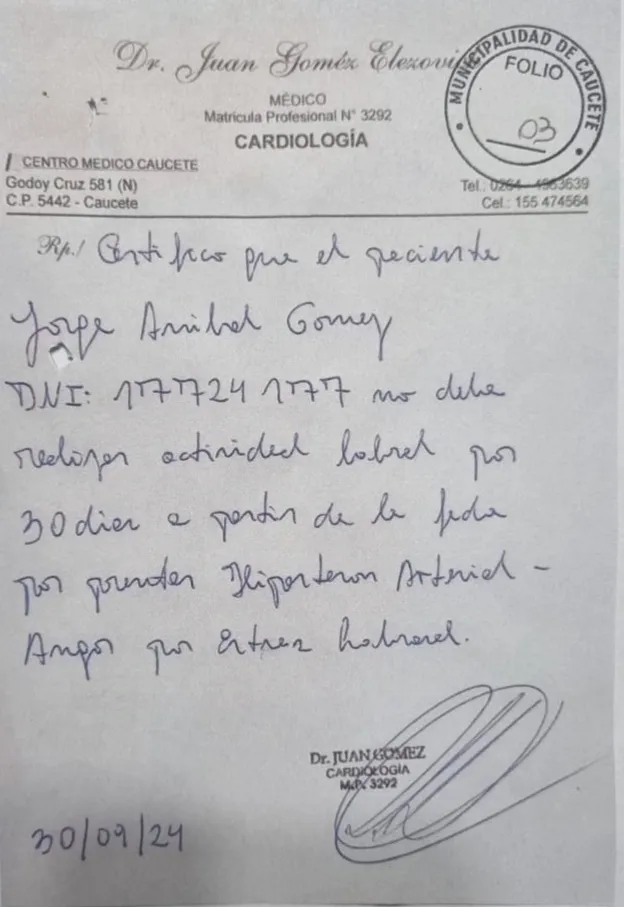 Dr. Juan Goméz Elezovi
MUNICIPALIDAD DE CAUCETE
FOLIO
03
MÉDICO
Matrícula Profesional N° 3292
CARDIOLOGÍA
CENTRO MEDICO CAUCETE
Godoy Cruz 581 (N)
C.P. 5442 - Caucete
Tel.: 0264 - 4963639
Cel.: 155 474564
Rp./ Certifico que el paciente
Jorge Anibal Gomez
DNI: 17724177 no debe
realizar actividad laboral por
30 dias a partir de la fecha
por presentar Hipertension Arterial -
Angor por Estres Laboral.
Dr. JUAN GOMEZ
CARDIOLOGÍA
M.P. 3292
30/09/24